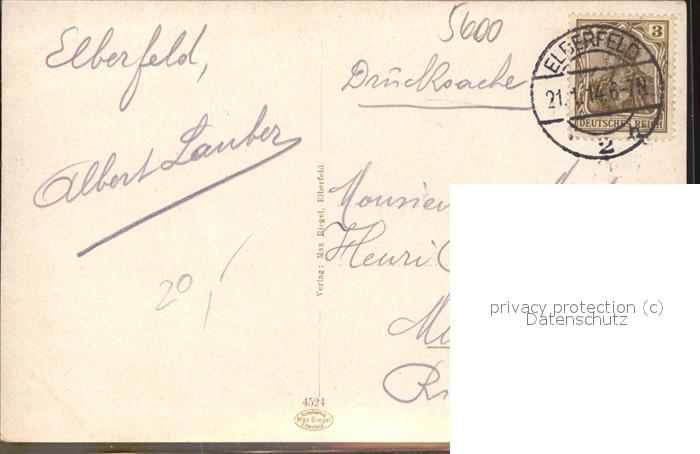 5600
Elberfeld,
Drucksache
Albert Lauber
ELBERFELD
21.1.14.6-7N
2 n
3
DEUTSCHES REICH
Monsieur
Henri
20,
Verlag: Max Biegel, Elberfeld.
4524
Max Biegel
Elberfeld
privacy protection (c)
Datenschutz